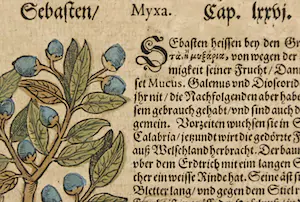 Sebasten/ Myxa. Cap. lxxvj.
SEbasten heissen bey den Gr
von wegen der
migkeit seiner Frucht/ Dan
set Mucus. Galenus vnd Dioscorid
jhr nit/ die Nachfolgenden aber habe
sein gebrauch gehabt/ vnd sind auch d
gemein. Vorzeiten wuchsen sie in S
Calabria/ jetzund wirt die gedörrte F
auß Welschland herbracht. Der baum
vber dem Erdtrich mit ein langen S
cher ein weisse Rinde hat. Seine äst s
Bletter lang/ vnd gegen dem Stiel r